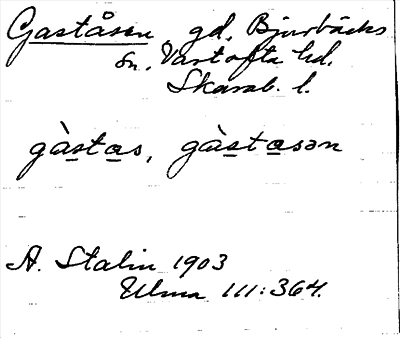 Gaståsen, gd, Bjurbäcks
sn, Vartofta hd,
Skarab. l.
gàstas, gàstasən
A. Stalin 1903
Ulma 111:364.